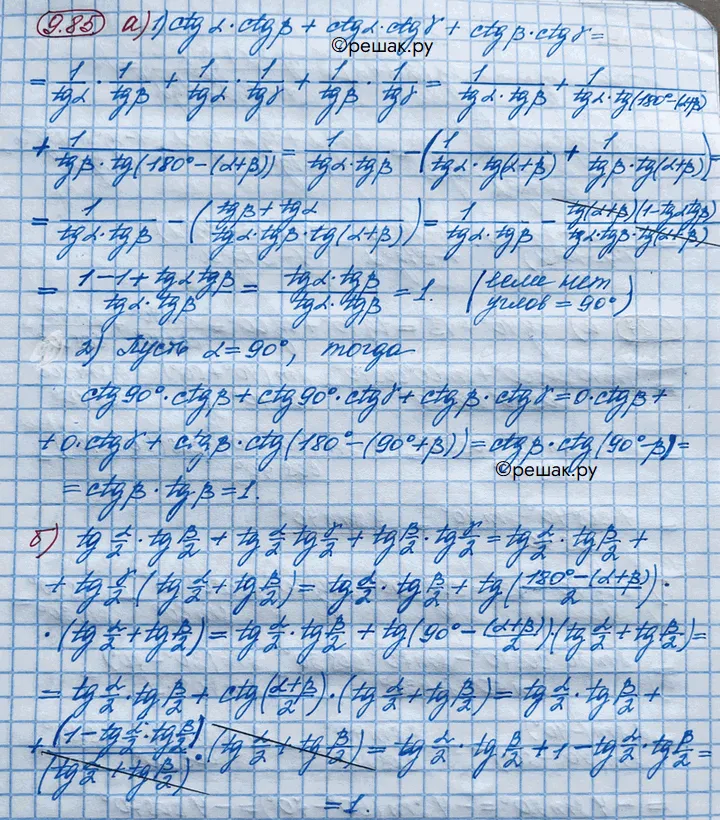 9.85 а) 1) ctg α · ctg β + ctg α · ctg γ + ctg β · ctg γ =
©решак.ру
= 1/tgα · 1/tgβ + 1/tgα · 1/tgγ + 1/tgβ · 1/tgγ = 1/(tgα · tgβ) + 1/(tgα · tg(180°-(α+β))
+ 1/(tgβ · tg(180°-(α+β))) = 1/(tgα · tgβ) - (1/(tgα · tg(α+β)) + 1/(tgβ · tg(α+β))) =
= 1/(tgα · tgβ) - ((tgβ + tgα)/(tgα · tgβ · tg(α+β))) = 1/(tgα · tgβ) - (tg(α+β)(1-tgα tgβ))/(tgα · tgβ · tg(α+β))
= (1-1+tgα tgβ)/(tgα · tgβ) = (tgα · tgβ)/(tgα · tgβ) = 1. (если нет углов = 90°)
2) Пусть α = 90°, тогда
ctg90° · ctgβ + ctg90° · ctgγ + ctgβ · ctgγ = 0 · ctgβ +
+ 0 · ctgγ + ctgβ · ctg(180°-(90°+β)) = ctgβ · ctg(90°-β) =
©решак.ру
= ctgβ · tgβ = 1.
б) tg α/2 · tg β/2 + tg α/2 tg γ/2 + tg β/2 · tg γ/2 = tg α/2 · tg β/2 +
+ tg γ/2 · (tg α/2 + tg β/2) = tg α/2 · tg β/2 + tg((180°-(α+β))/2) ·
· (tg α/2 + tg β/2) = tg α/2 · tg β/2 + tg(90° - (α+β)/2) · (tg α/2 + tg β/2) =
= tg α/2 · tg β/2 + ctg((α+β)/2) · (tg α/2 + tg β/2) = tg α/2 · tg β/2 +
+ (1-tg α/2 · tg β/2)/(tg α/2 + tg β/2) · (tg α/2 + tg β/2) = tg α/2 · tg β/2 + 1 - tg α/2 · tg β/2 =
= 1.